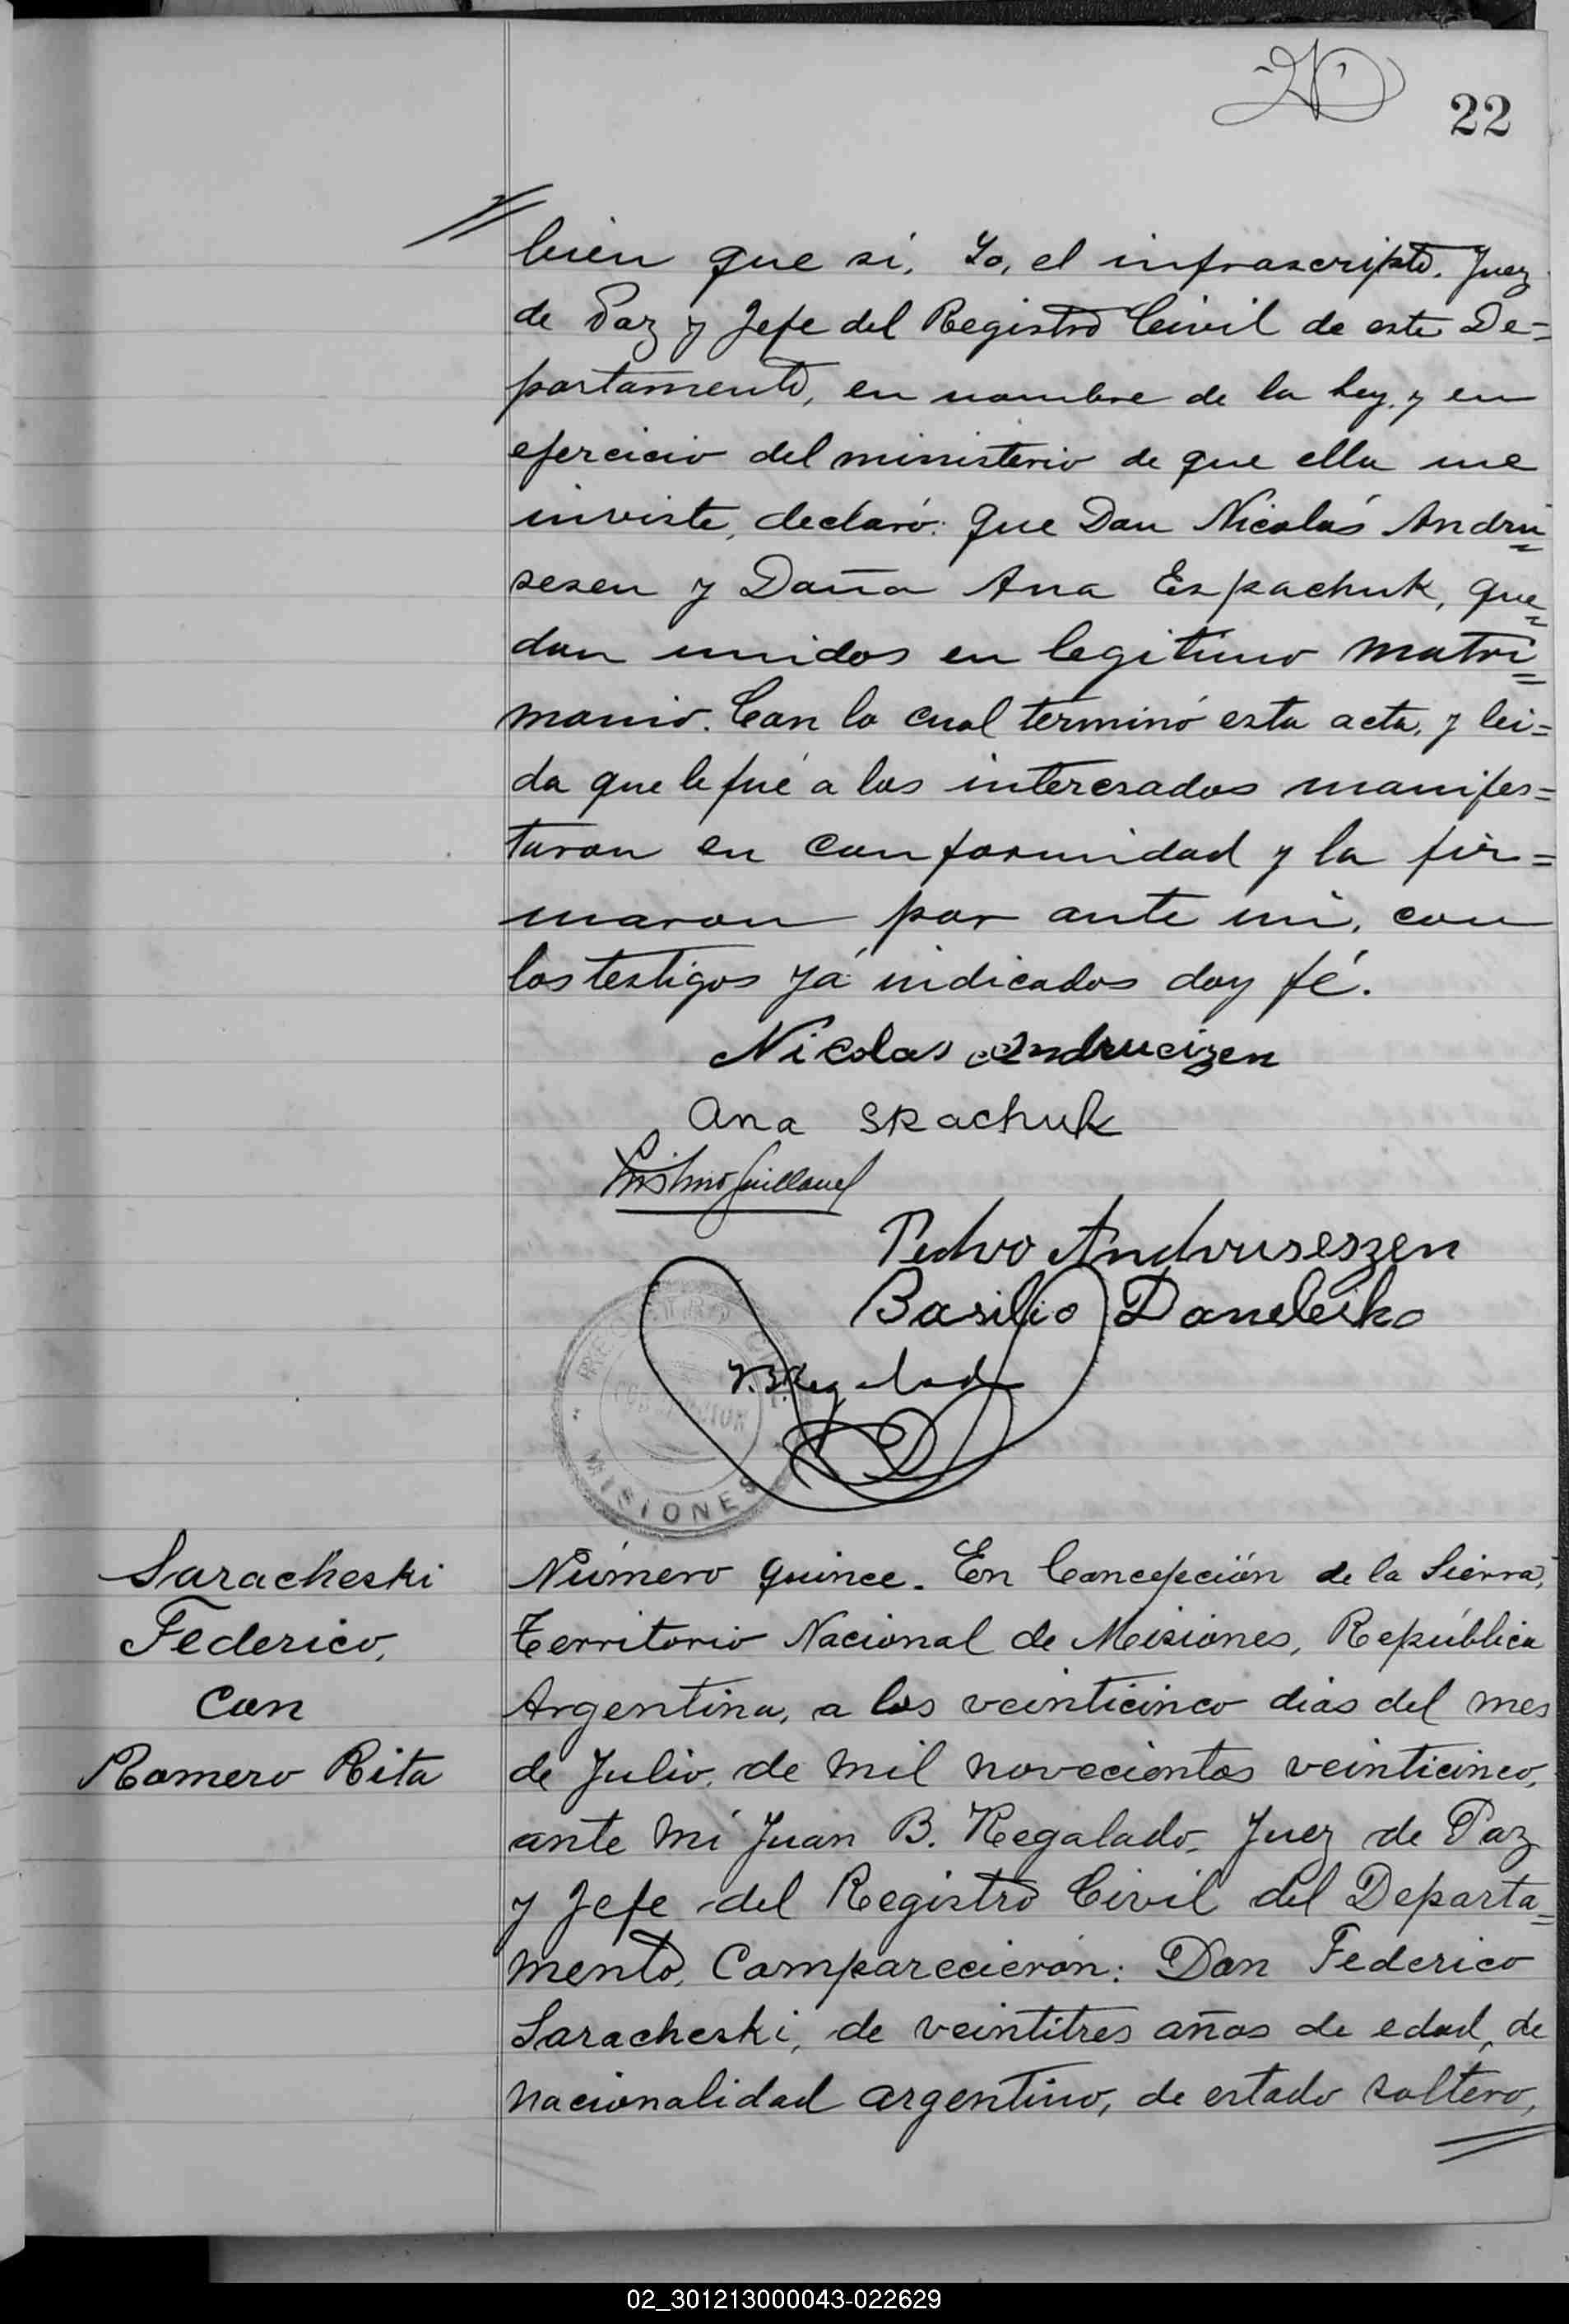 22
bien que si, Yo, el infrascripto. Juez
de Paz y Jefe del Registro Civil de este De=
partamento, en nombre de la ley, y en
ejercicio del ministerio de que ella me
inviste, declaró: que Don Nicolás Andru=
sesen y Doña Ana Espachuk, que=
dan unidos en legitimo matri=
monio. Con lo cual terminó esta acta, y lei=
da que le fué a los interesados manifes=
taron en conformidad y la fir=
maron por ante mi, con
los testigos yá indicados doy fé.
Nicolas Andrucizen
Ana SPachuk
Pedro Andruseszen
Basilio Daneleiko
J. B. Regalado
REGISTRO CIVIL
MISIONES
Saracheski
Federico,
con
Romero Rita
Número quince. En Concepción de la Sierra,
Territorio Nacional de Misiones, República
Argentina, a los veinticinco dias del mes
de Julio, de mil novecientos veinticinco,
ante mí Juan B. Regalado, Juez de Paz
y Jefe del Registro Civil del Departa=
mento, Comparecierón: Don Federico
Saracheski, de veintitres años de edad, de
nacionalidad argentino, de estado soltero,
02_301213000043-022629